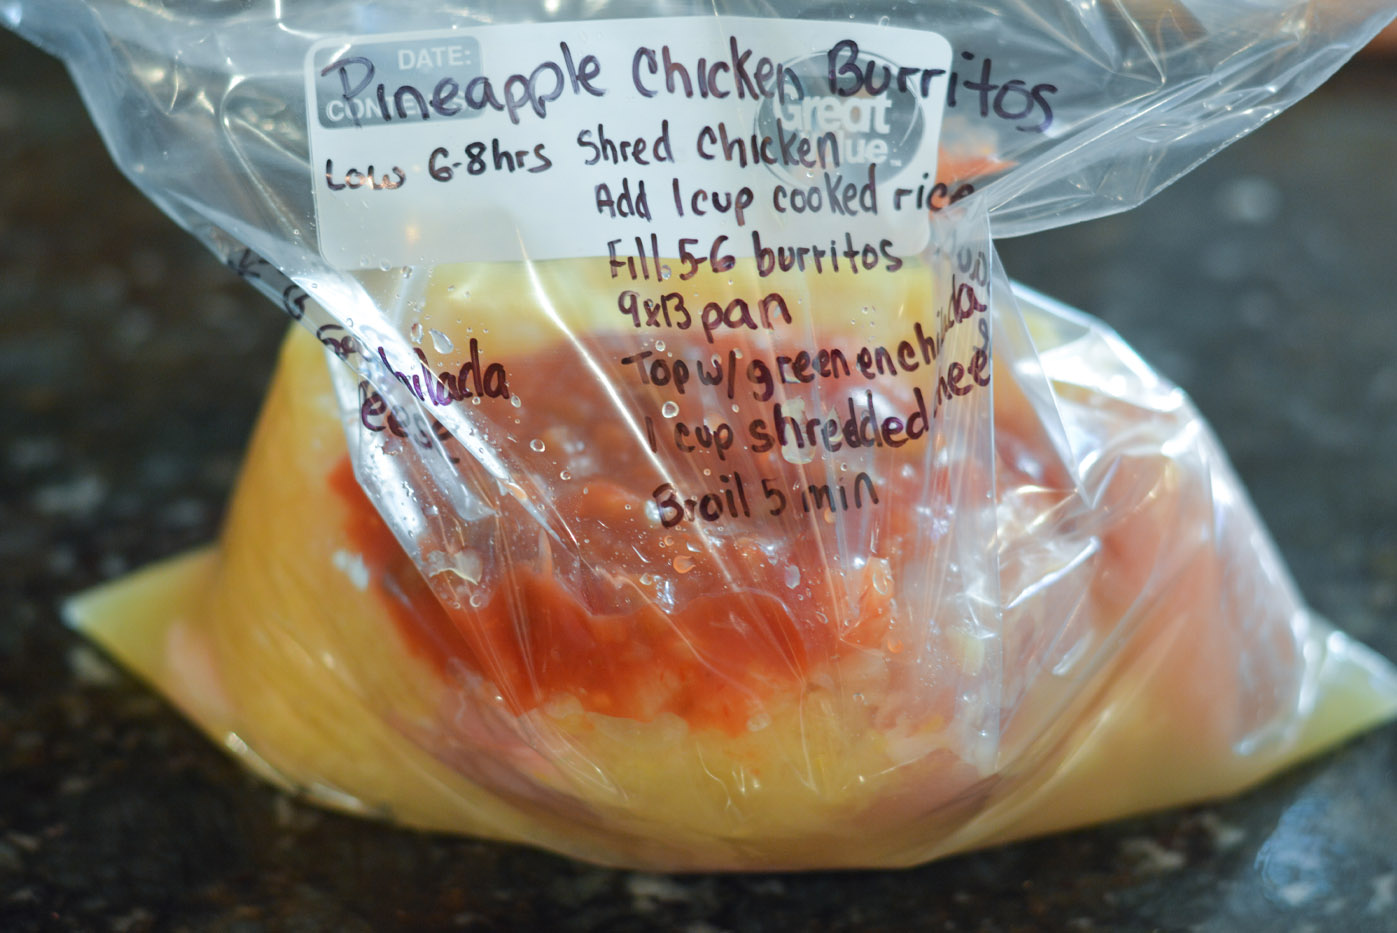 DATE:
Pineapple Chicken Burritos
Great
Low 6-8hrs Shred Chicken
Add 1cup cooked rice
Fill 5-6 burritos
9x13 pan
Top w/ green enchilada
1 cup shredded
Broil 5 min
hilada
eese